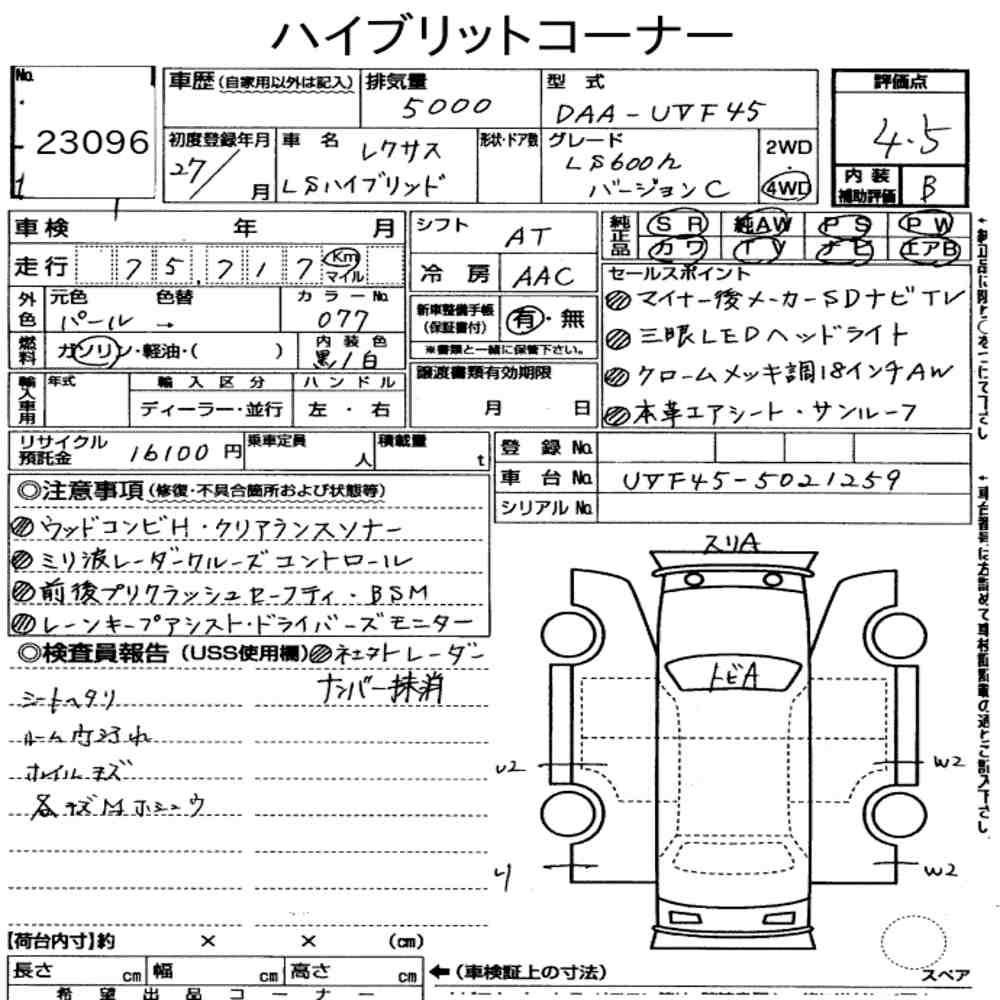 ハイブリットコーナー
No.
23096
車歴(自家用以外は記入)
排気量
5000
型 式
DAA-UVF45
評価点
4.5
初度登録年月
27/ 月
車 名
レクサス
LSハイブリッド
形状・ドア数
グレード
LS600h
バージョンC
2WD
・
4WD
内 装
補助評価
B
車検 年 月
走行 75,717 Km マイル
シフト
AT
冷 房
AAC
純正品
SR 純AW PS PW
カワ TV ナビ エアB
外色
元色 色替
パール →
カラーNo.
077
新車整備手帳
(保証書付)
有・無
※書類と一緒に保管下さい。
セールスポイント
マイナー後メーカーSDナビTV
三眼LEDヘッドライト
クロームメッキ調18インチAW
本革エアシート・サンルーフ
燃料
ガソリン・軽油・( )
内 装 色
黒/白
輸入車用
年式
輸 入 区 分
ディーラー・並行
ハ ン ド ル
左 ・ 右
譲渡書類有効期限
月 日
リサイクル
預託金
16100 円
乗車定員
人
積載量
t
登 録 No.
車 台 No.
UVF45-5021259
シリアル No.
◎注意事項(修復・不具合箇所および状態等)
ウッドコンビH・クリアランスソナー
ミリ波レーダークルーズコントロール
前後プリクラッシュセーフティ・BSM
レーンキープアシスト・ドライバーズモニター
◎検査員報告(USS使用欄)
レーダー
ナンバー抹消
シートヘタリ
ルーム内スレ
ホイルキズ
各キズMホシュウ
スリA
トビA
U2
W2
W2
【荷台内寸】約 × × (cm)
長さ cm 幅 cm 高さ cm
←(車検証上の寸法)
スペア
希 望 出 品 コ ー ナ ー